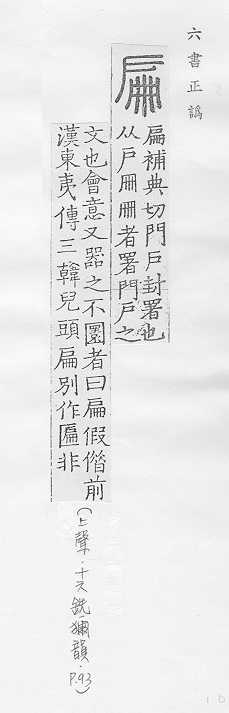 六書正譌
扁
扁補典切門戶封署也
从戶冊冊者署門戶之
文也會意又器之不圜者曰扁假偺前
漢東夷傳三韓兒頭扁別作匾非
(上聲.十六銑獮韻.P.93)